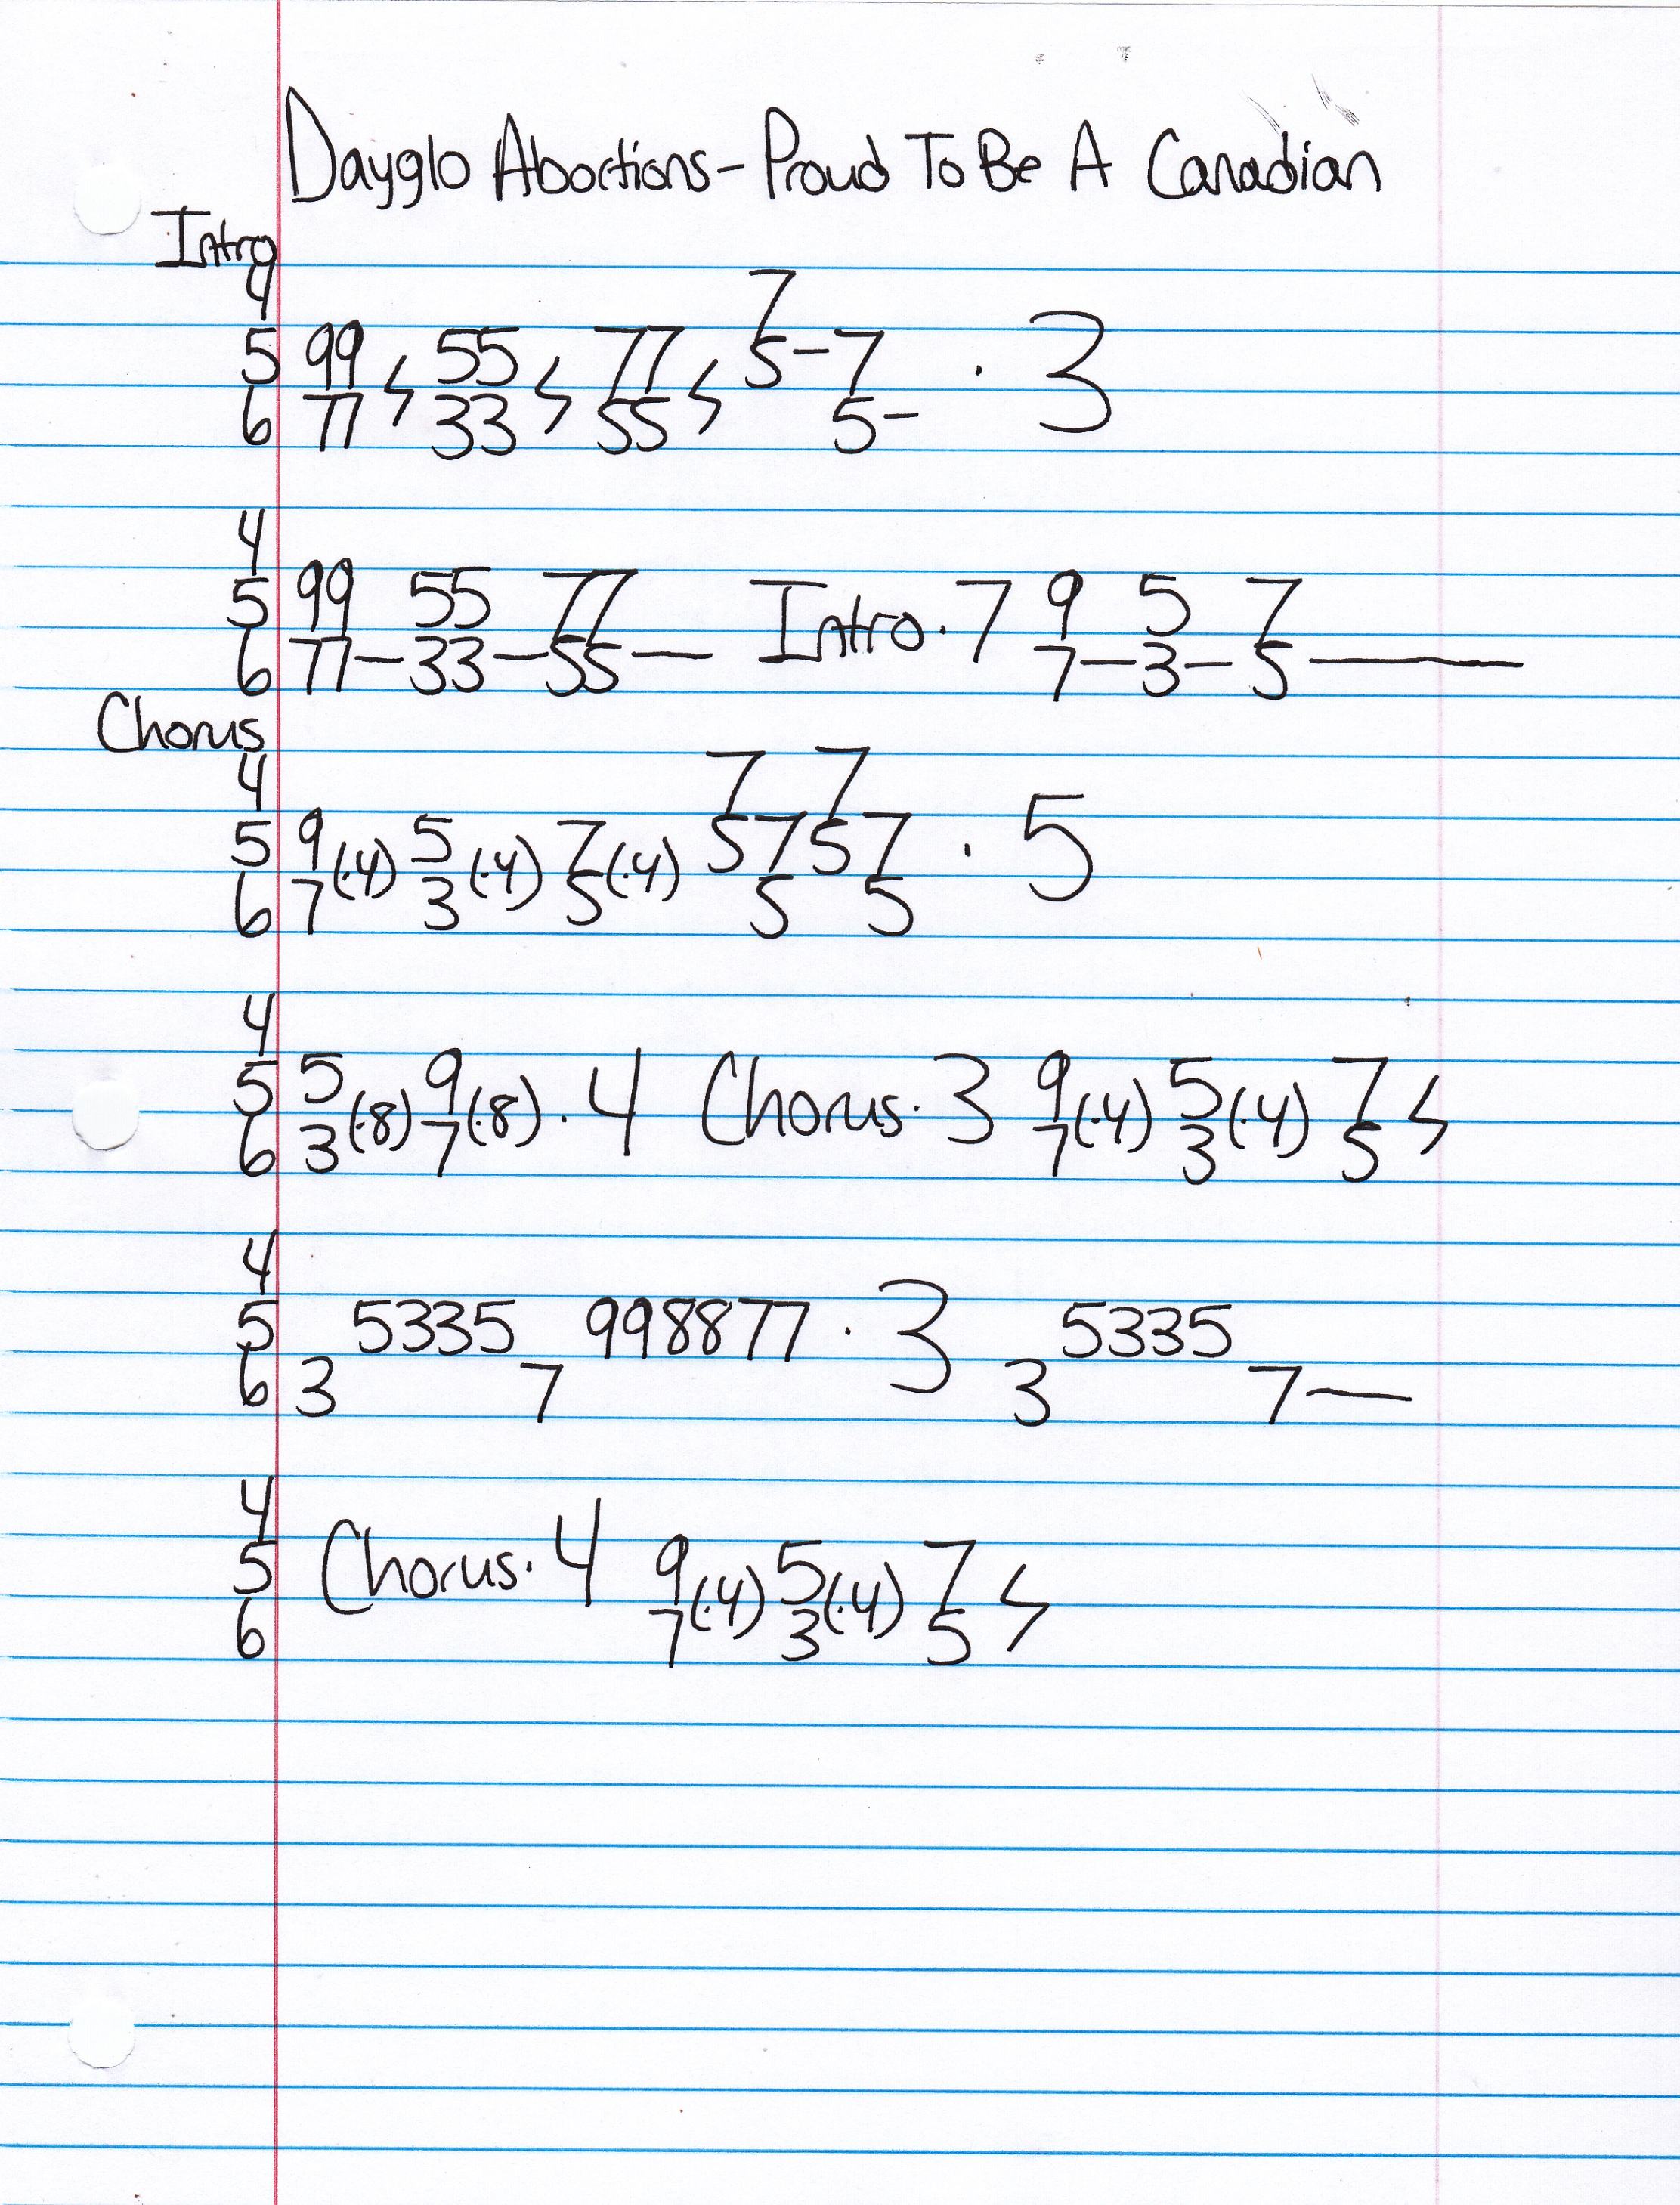 Dayglo Abortions - Proud To Be A Canadian
Intro
4 7
5 99 55 77 5-7 · 3
6 77 33 55 5-
4
5 99 55 77 Intro · 7 9 5 7
6 77-33-55- 7-3-5-
Chorus
4 7 7
5 9(·4) 5(·4) 7(·4) 5757 · 5
6 7 3 5 5 5
4
5 5(·8) 9(·8) · 4 Chorus · 3 9(·4) 5(·4) 7
6 3 7 7 3 5
4
5 5335 998877 · 3 5335
6 3 7 3 7-
4
5 Chorus · 4 9(·4) 5(·4) 7
6 7 3 5